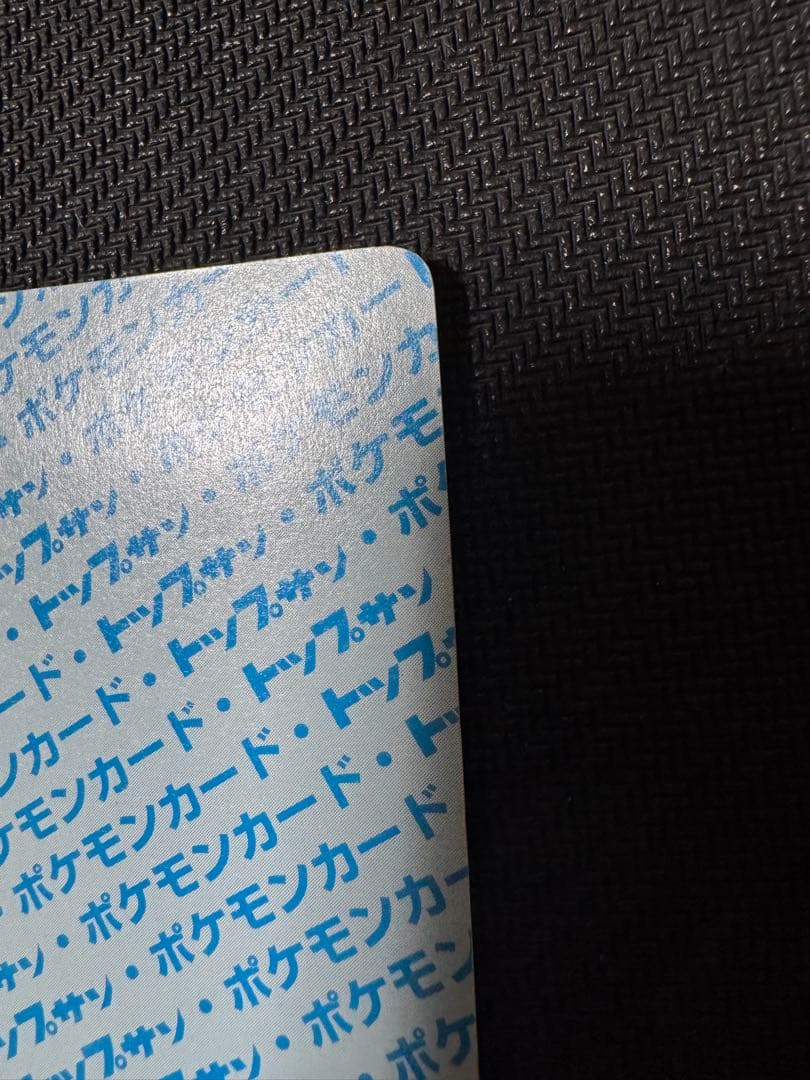 ンカ
ケモンカ
・ポケモンカー
サン・ポケモンカード
ップサン・ポケモンカー
・トップサン・ポケモンカ
ード・トップサン・ポケモ
ンカード・トップサン・ポ
ケモンカード・トップサン
・ポケモンカード・トップ
・ポケモンカード・ト
サン・ポケモンカード
ップサン・ポケモンカ
トップサン・ポケモン
ポケ